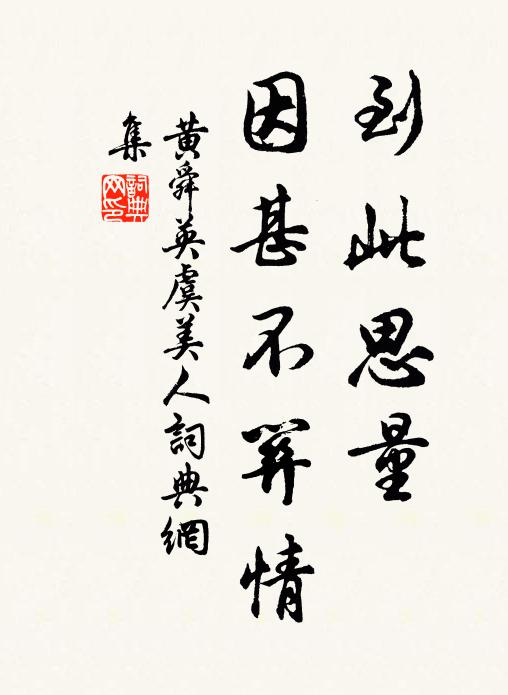 到此思量
因甚不關情
黄舜英虞美人詞典網
集
詞典
网印